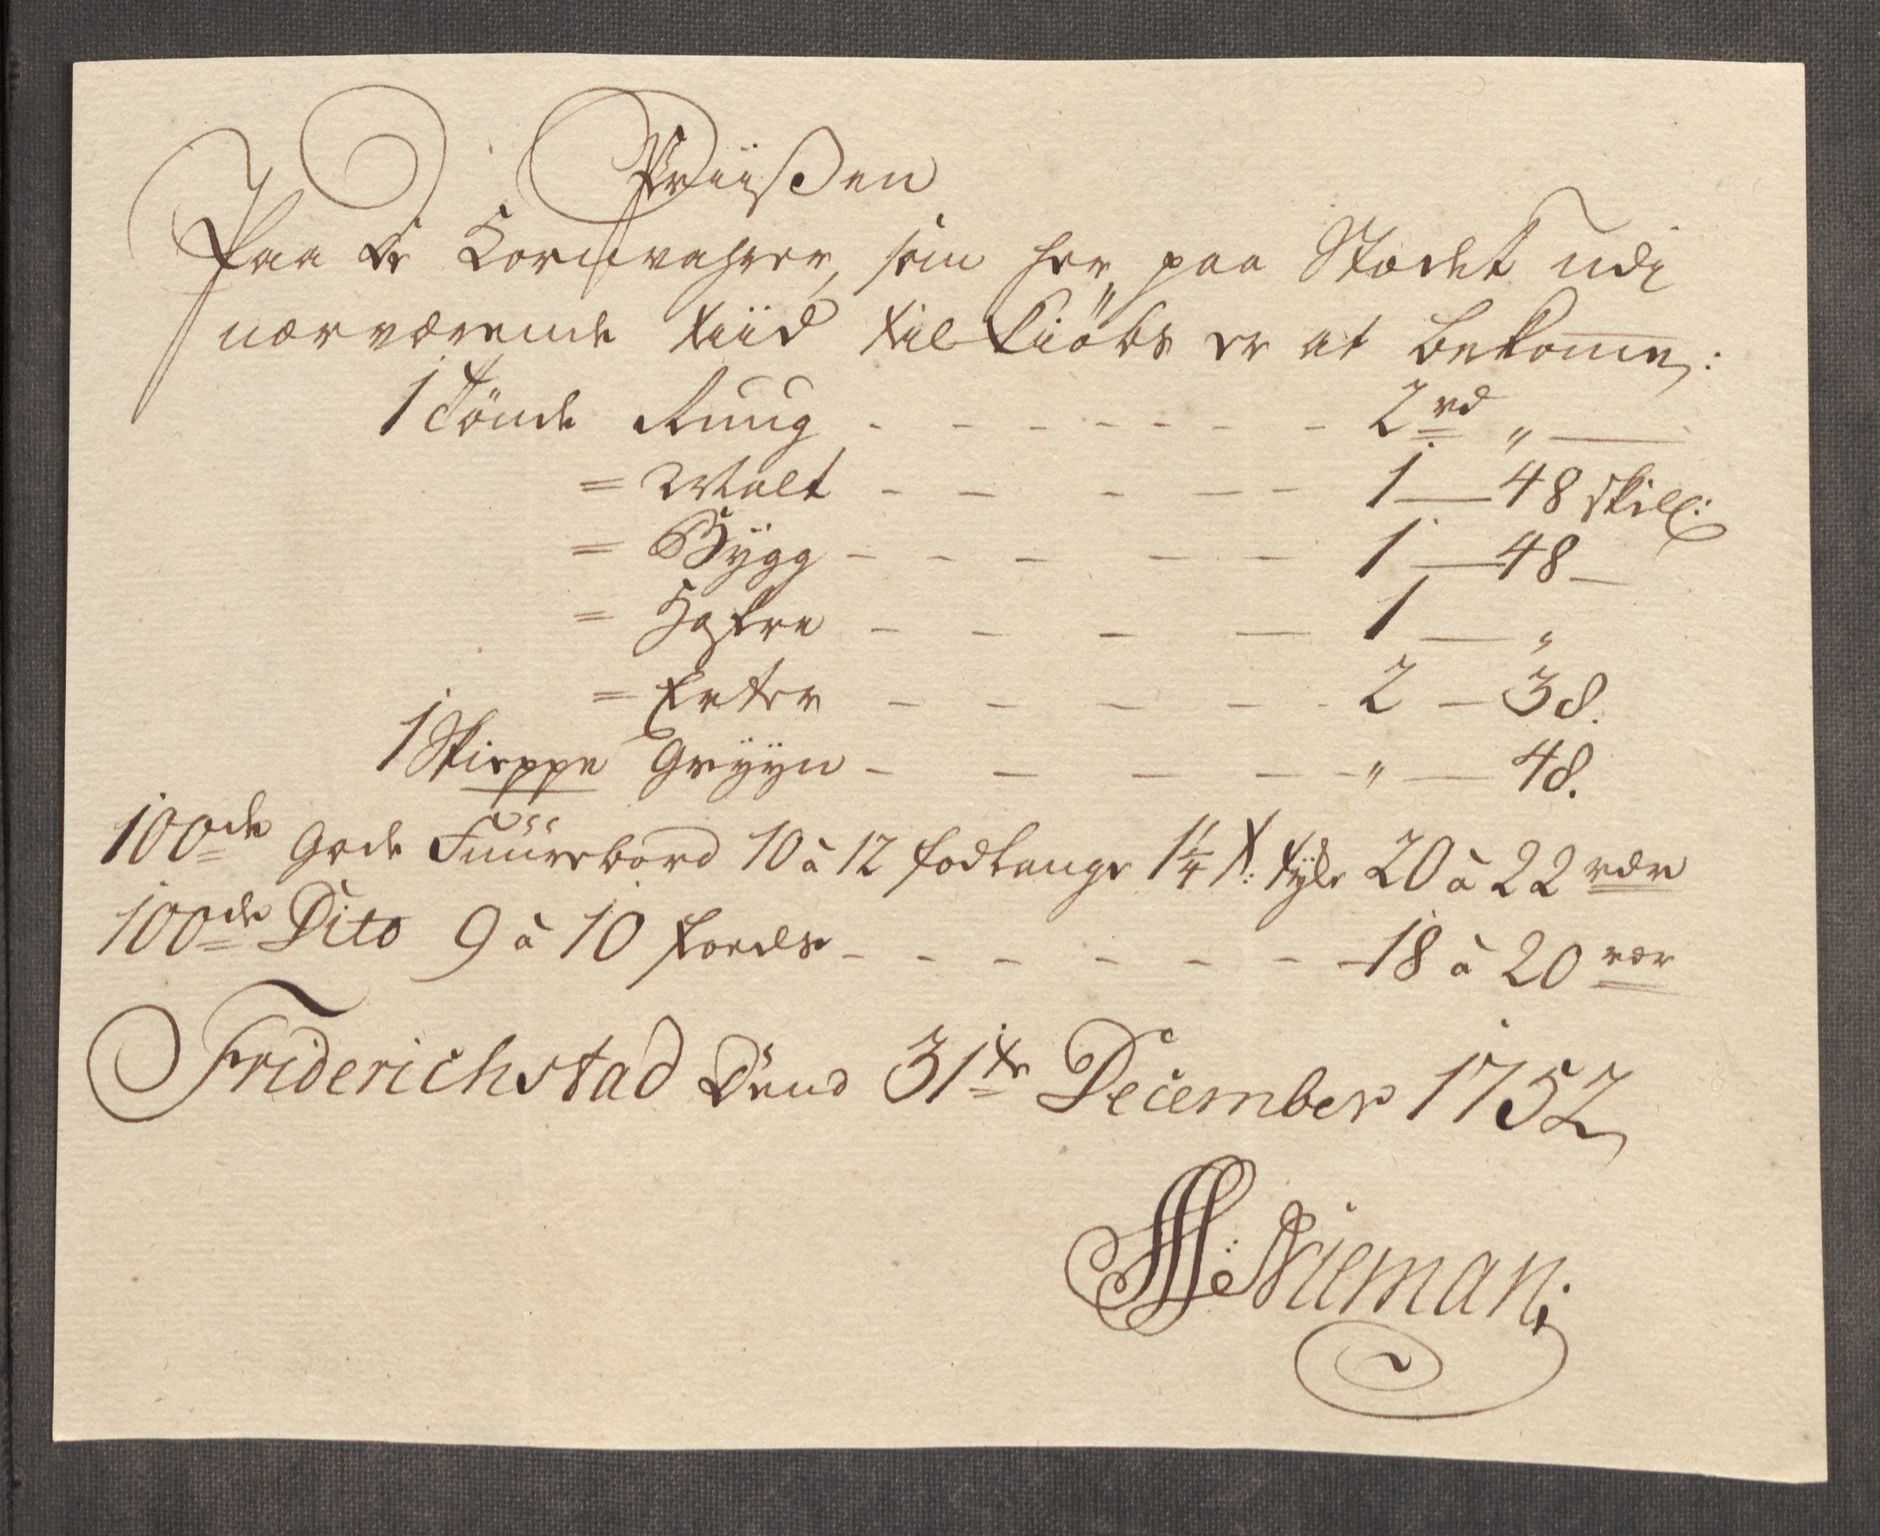 Priisen
Paa de Kornvahrer, som her paa Stædet udi
nærværende tiid til kiöbs er at bekomme:
1 Tönde Ruug - - - - - - - 2 rd „ —
= Malt - - - - - 1 — 48 skill:
= Bÿgg - - - - - 1 — 48 —
= Hafre - - - - 1 — „
= Erter - - - - - 2 — 38.
1 Skieppe Grÿÿn - - - - - „ — 48.
100de gode Fuurebord 10 à 12 fod lange 1¼ t: tÿke 20 à 22 rdr
100de Dito 9 à 10 foeds - - - - - - - 18 à 20 rdr
Friderichstad dend 31te December 1752
Nieman: